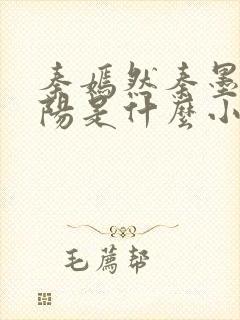 秦嫣然秦墨
陽是什麼小
毛薦幫